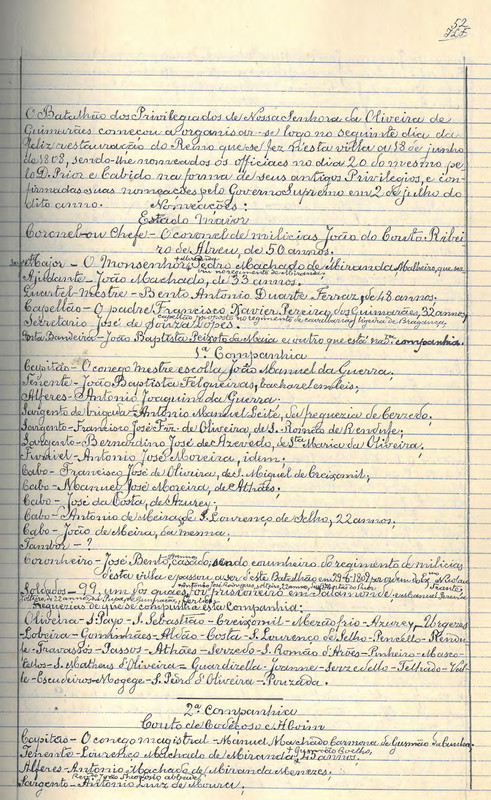 52
O Batalhão dos Privilegiados de Nossa Senhora da Oliveira de
Guimarães começou a organisar-se logo no seguinte dia da
feliz restauração do Reino que se fez n'esta villa a 18 de junho
de 1808, sendo-lhe nomeados os officiaes no dia 20 do mesmo pe-
lo D. Prior e Cabido na forma de seus antigos Privilegios, e con-
firmadas suas nomeações pelo Governo Supremo em 2 de julho do
dito anno. Nomeações:
Estado Maior
Coronel ou Chefe - O coronel de milicias João do Couto Ribei-
ro de Abreu, de 50 annos.
Major - O Monsenhor Pedro Machado de Miranda Malheiro, que
Ajudante - João Machado, de 33 annos.
Quartel-mestre - Bento Antonio Duarte Ferraz, de 48 annos.
Capellão - O padre Francisco Xavier Pereira, de Guimarães, 32 annos,
capellão proposto no regimento de cavallaria ligeira de Bragança,
Secretario José de Souza Lopes.
Porta Bandeira - João Baptista Peixoto da Maia e outro que está na 5ª companhia.
1ª Companhia
Capitão - O conego mestre escolla João Manuel da Guerra;
Tenente - João Baptista Felgueiras, bacharel em leis;
Alferes - Antonio Joaquim da Guerra;
Sargento de brigada - Antonio Manuel Leite, da freguezia de Cerzedo;
Sargento - Francisco José Frr. de Oliveira, de S. Romão de Rendufe;
Sargento - Bernardino José de Azevedo, de Stª Maria da Oliveira;
Furriel - Antonio José Moreira, idem;
Cabo - Francisco José de Oliveira, de S. Miguel de Creixomil;
Cabo - Manuel José Moreira, de Athães;
Cabo - José da Costa, de Azurey;
Cabo - Antonio de Meira, de S. Lourenço de Selho, 22 annos;
Cabo - João de Meira, da mesma;
Tambor - ?
Coronheiro - José Bento, casado, sendo coronheiro do regimento de milicias
desta villa e passou a ser deste Batalhão em 29-6-1808 por
Soldados - 99, um dos quaes foi prisioneiro em Valamonde,
Freguezias de que se compunha esta Companhia:
Oliveira - S. Payo - S. Sebastião - Creixomil - Mezãofrio - Azurey, Urgezes
Lobeira - Gominhães - Aldão - Costa - S. Lourenço de Selho - Pencello - Rendu-
fe - Travassós - Passos - Athães - Serzedo - S. Romão d'Arões - Pinheiro - Masco-
tellos - S. Matheus d'Oliveira - Guardizella - Joanne - Serzedello - Telhado - Val-
le - Escudeiros - Mogege - S. Pedro d'Oliveira - Pouzada.
2ª Companhia
Couto de Codeçoso e Aboim
Capitão - O conego magistral - Manuel Machado Carmona de Gusmão da Cunha;
Gusmão Coelho,
Tenente - Lourenço Machado de Miranda, 45 annos;
Alferes - Antonio Machado de Miranda Menezes;
Sargento - Antonio Luiz de Moura;